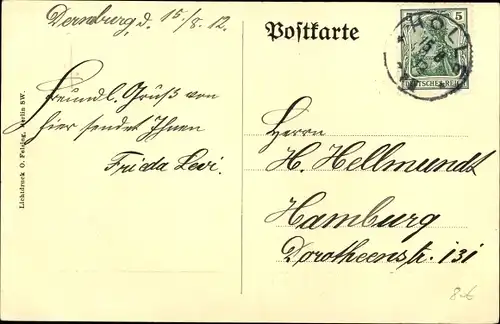 Derneburg, d. 15/8. 12.
Freundl. Gruß von
hier sendet Ihnen
Frieda Levi.
Postkarte
5 5
DEUTSCHES REICH
HOLLE
Herrn
H. Hellmundt
Hamburg
Dorotheenstr. 131
Lichtdruck O. Felsing, Berlin SW.